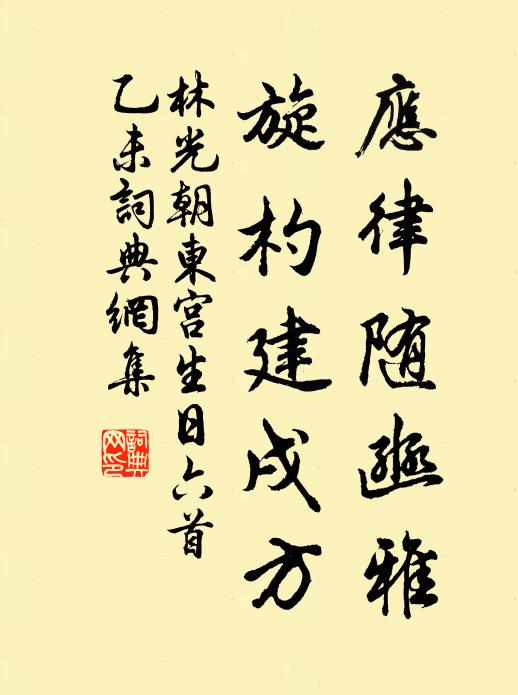 應律随豳雅
旋杓建戌方
林光朝東宫生日六首
乙未詞典網集
詞典网印